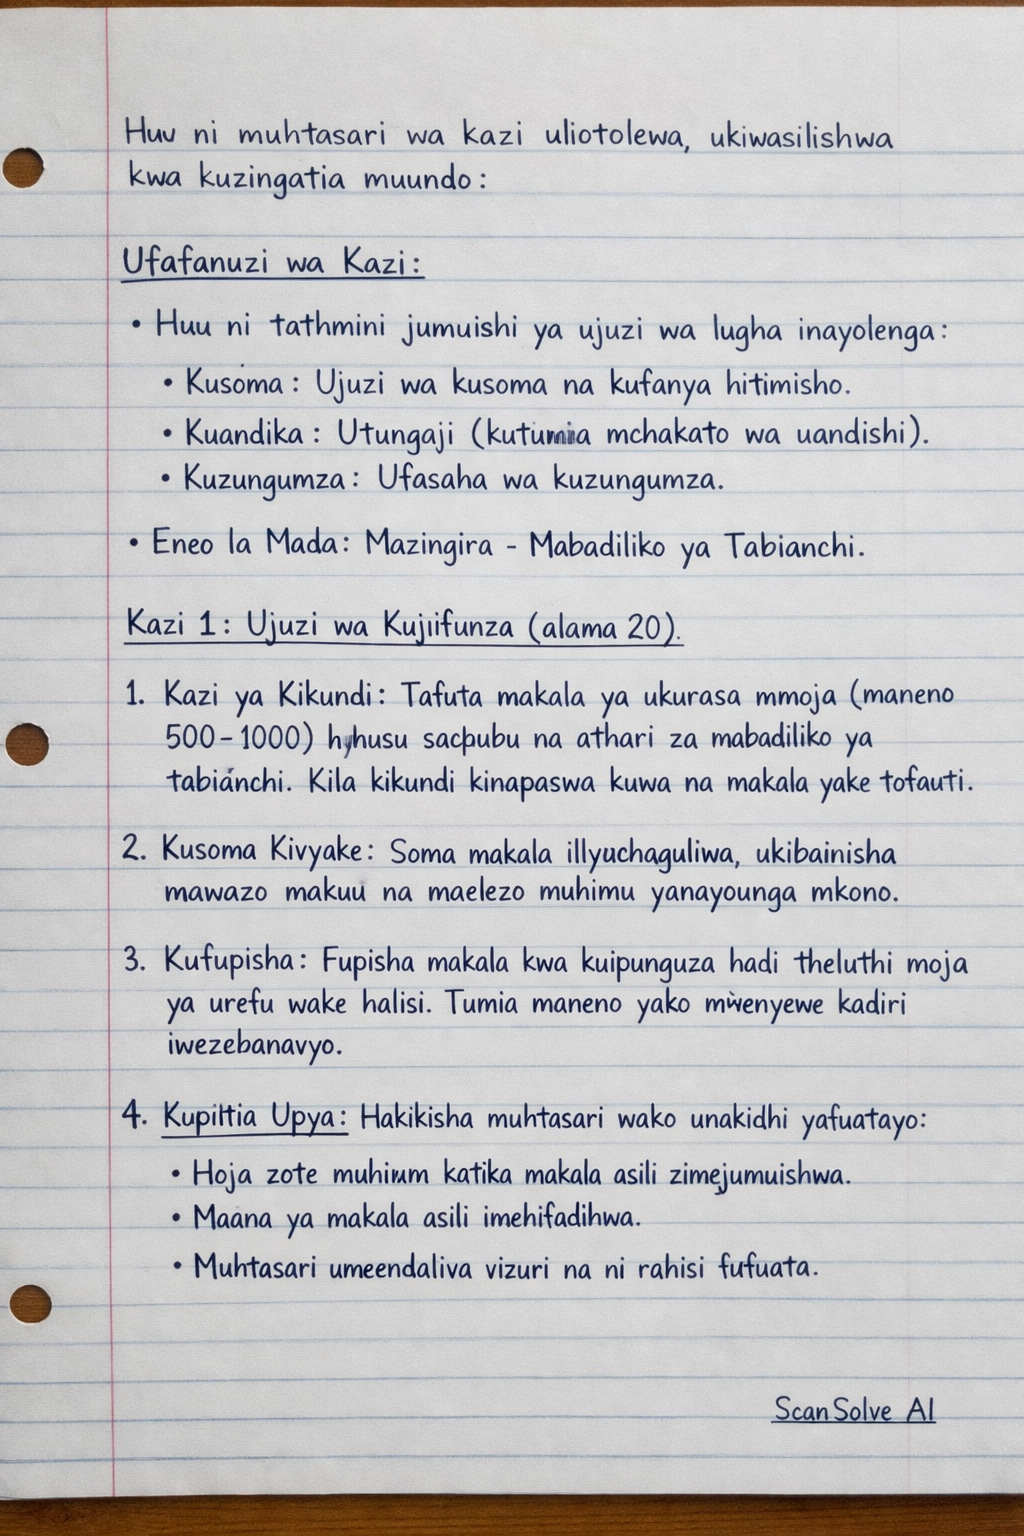 Huu ni muhtasari wa kazi uliotolewa, ukiwasilishwa
kwa kuzingatia muundo:
Ufafanuzi wa Kazi:
• Huu ni tathmini jumuishi ya ujuzi wa lugha inayolenga:
• Kusoma: Ujuzi wa kusoma na kufanya hitimisho.
• Kuandika: Utungaji (kutumia mchakato wa uandishi).
• Kuzungumza: Ufasaha wa kuzungumza.
• Eneo la Mada: Mazingira - Mabadiliko ya Tabianchi.
Kazi 1: Ujuzi wa Kujiifunza (alama 20).
1. Kazi ya Kikundi: Tafuta makala ya ukurasa mmoja (maneno
500-1000) na athari za mabadiliko ya
tabianchi. Kila kikundi kinapaswa kuwa na makala yake tofauti.
2. Kusoma Kivyake: Soma makala illyuchaguliwa, ukibainisha
mawazo makuu na maelezo muhimu yanayounga mkono.
3. Kufupisha: Fupisha makala kwa kuipunguza hadi theluthi moja
ya urefu wake halisi. Tumia maneno yako mwenyewe kadiri
iwezebanavyo.
4. Upya: Hakikisha muhtasari wako unakidhi yafuatayo:
• Hoja zote katika makala asili zimejumuishwa.
• Maana ya makala asili imehifadihwa.
• Muhtasari umeendaliva vizuri na ni rahisi fufuata.
ScanSolve AI